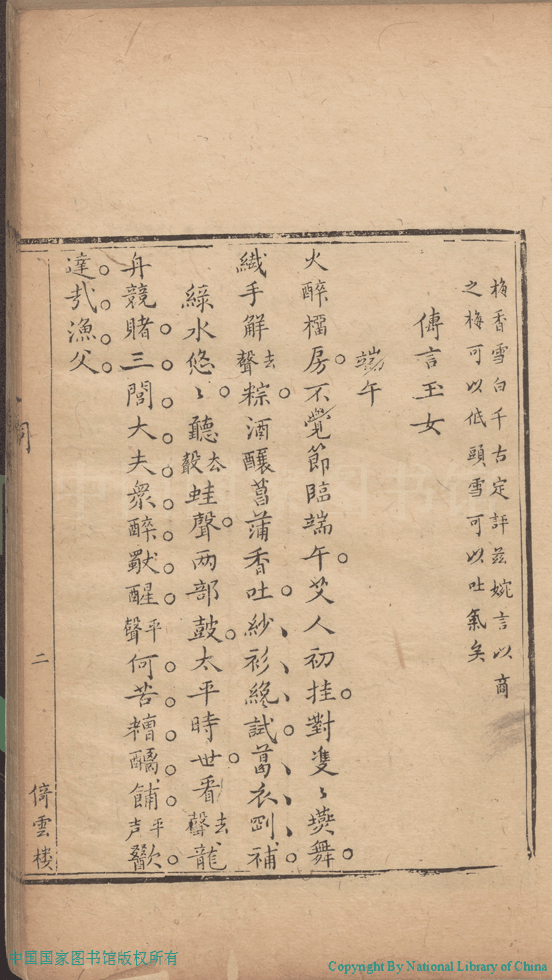 梅香雪白千古定評茲婉言以商
之梅可以低頭雪可以吐氣矣
傳言玉女
端午
火醉榴房不覺節臨端午艾人初挂對雙〻燕舞
纖手解去聲粽酒釀菖蒲香吐紗衫纔試葛衣剛補
綠水悠〻聽去聲蛙聲兩部鼓太平時世看去聲龍
舟競賭三閭大夫衆醉獸醒平聲何苦糟醨餔平声歠
達哉漁父
二
倚雲樓
中国国家图书馆版权所有
Copyright By National Library of China